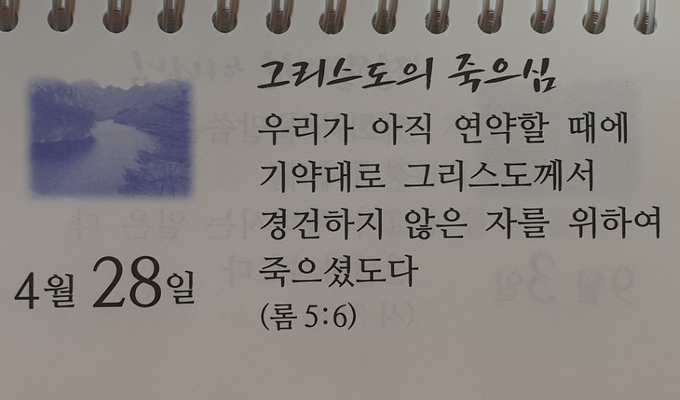 그리스도의 죽으심
우리가 아직 연약할 때에
기약대로 그리스도께서
경건하지 않은 자를 위하여
죽으셨도다
(롬 5:6)
4월 28일